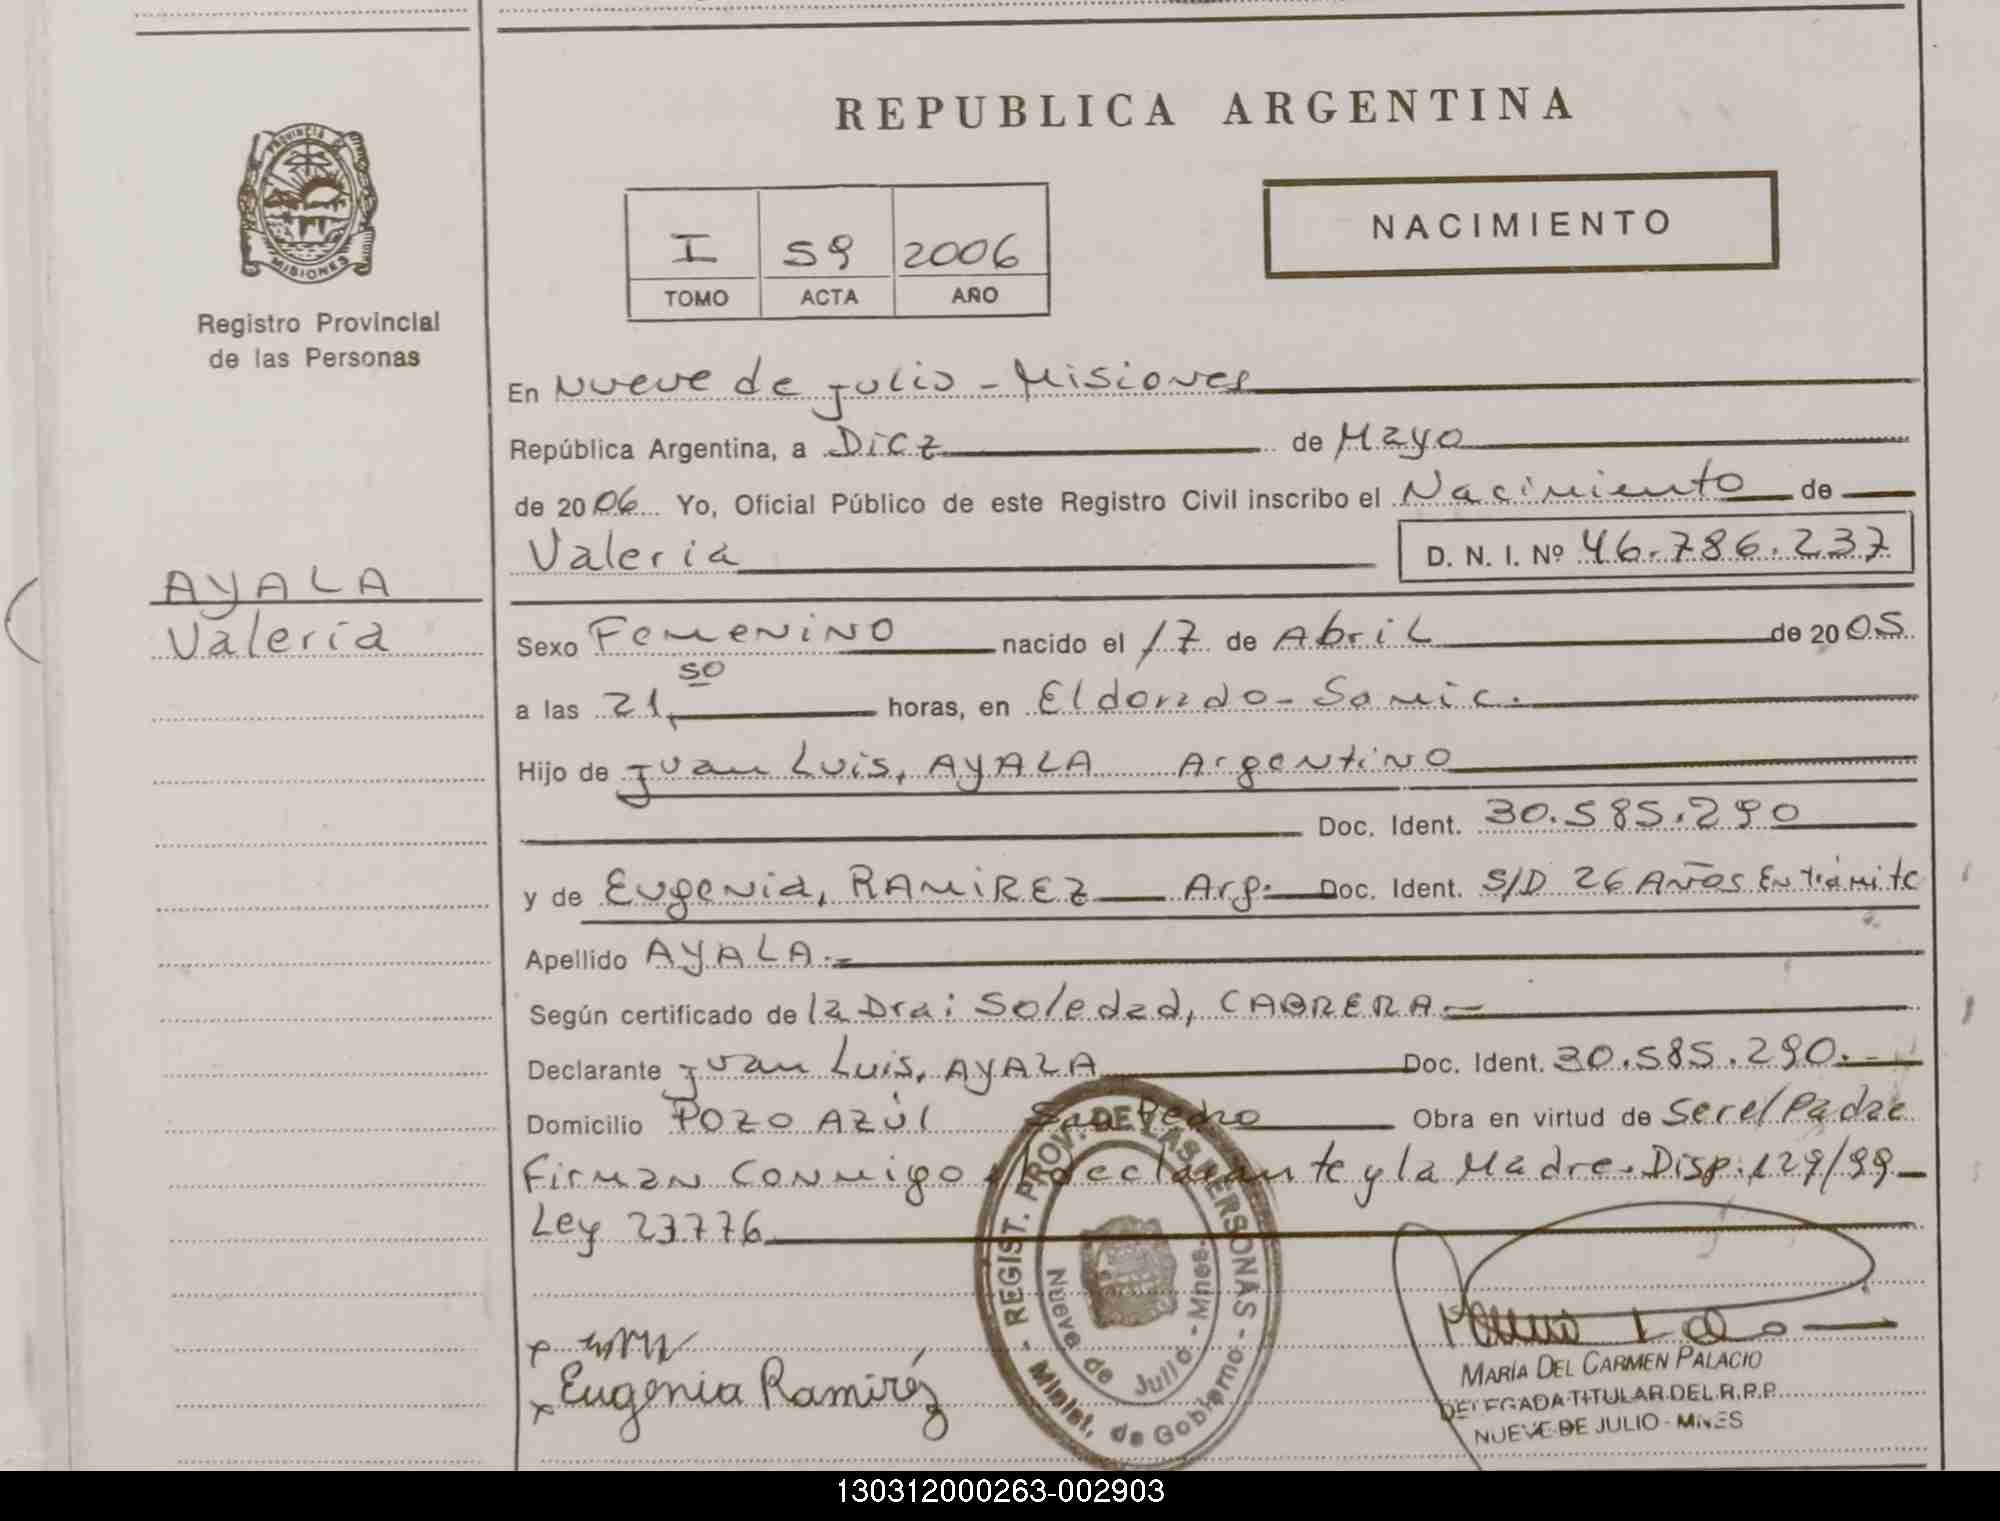 REPUBLICA ARGENTINA
PROVINCIA DE MISIONES
Registro Provincial
de las Personas
I 59 2006
TOMO ACTA AÑO
NACIMIENTO
En Nueve de Julio - Misiones
República Argentina, a Diez de Mayo
de 2006 Yo, Oficial Público de este Registro Civil inscribo el Nacimiento de
Valeria D. N. I. Nº 46.786.237
AYALA
Valeria
Sexo Femenino nacido el 17 de Abril de 2005
a las 21,50 horas, en Eldorado - Samic.
Hijo de Juan Luis, AYALA Argentino
Doc. Ident. 30.585.290
y de Eugenia, RAMIREZ Arg. Doc. Ident. S/D 26 AÑOS En trámite
Apellido AYALA.=
Según certificado de la Dra: Soledad, CABRERA =
Declarante Juan Luis, AYALA Doc. Ident. 30.585.290.-
Domicilio POZO AZÚL San Pedro Obra en virtud de Ser el Padre
Firman conmigo declarante y la Madre. Disp. 129/99
Ley 23776
REGIST. PROV. DE LAS PERSONAS - Minist. de Gobierno -
Nueve de Julio - Mnes.
Eugenia Ramiréz
MARÍA DEL CARMEN PALACIO
DELEGADA TITULAR DEL R.P.P.
NUEVE DE JULIO - MNES
130312000263-002903